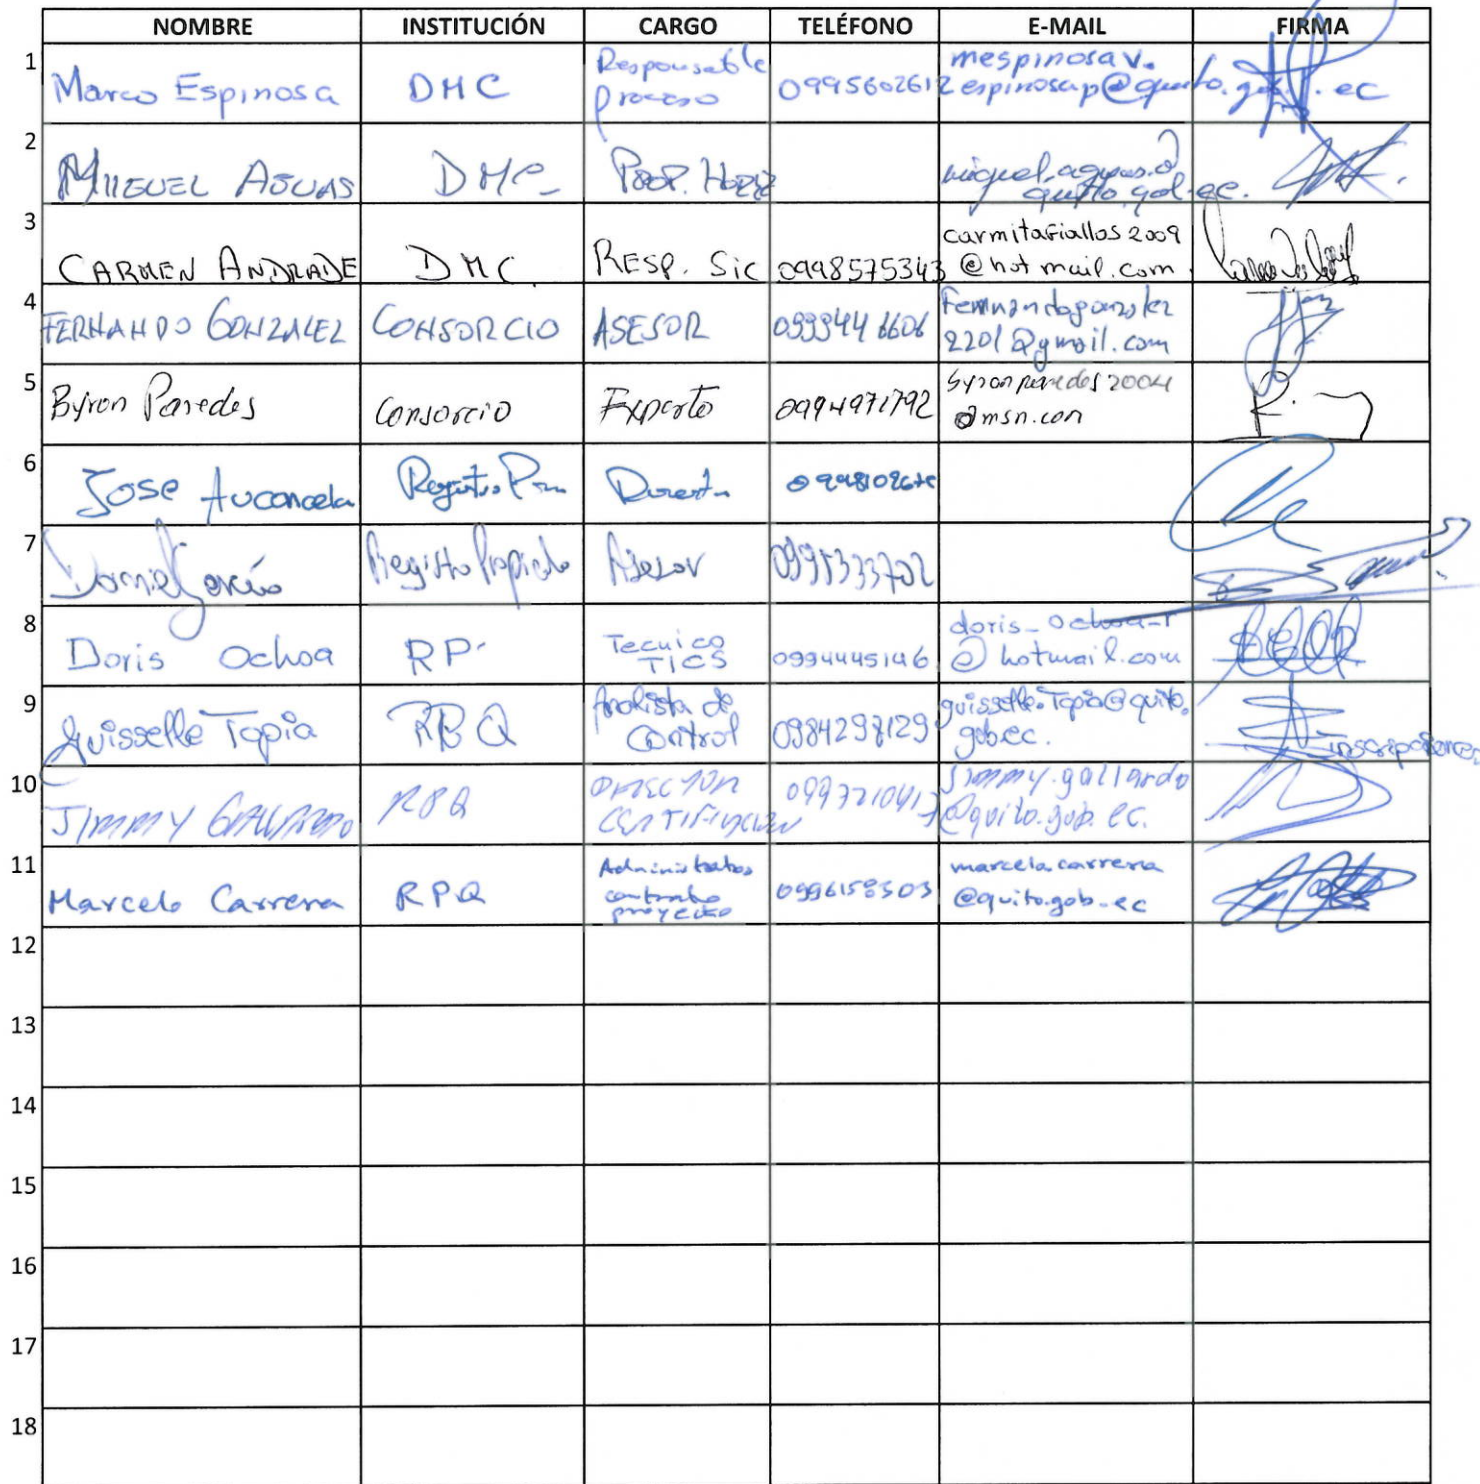 NOMBRE INSTITUCIÓN CARGO TELÉFONO E-MAIL FIRMA
1 Marco Espinosa DMC Responsable proceso 0995602612 mespinosav. espinosap@quito.gob.ec
2 MIIGUEL AGUAS DMC PROP. HORIZ miguel.aguas@ quito.gob.ec.
3 CARMEN ANDRADE DMC RESP. Sic 0998575343 carmitafiallos2009 @hotmail.com
4 FERNANDO GONZALEZ CONSORCIO ASESOR 2201@gmail.com
5 Byron Paredes Consorcio Experto 0994971792 byronparedes2004 @msn.con
6 Jose Aucancela Director
7 Daniel García Registro Asesor 0995333702
8 Doris Ochoa RP. Tecnico TICS 0994445146 doris_ochoa_r @hotmail.com
9 Guisselle Tapia RPQ Analista de Control 0984298129 guisselle.Tapia@quito. gob.ec.
10 JIMMY GALLARDO RPQ DIRECTOR CERTIFICACION Jimmy.gallardo @quito.gob.ec.
11 Marcelo Carrera RPQ Administrador contrato proyecto 0996158303 marcela.carrera @quito.gob.ec
12
13
14
15
16
17
18